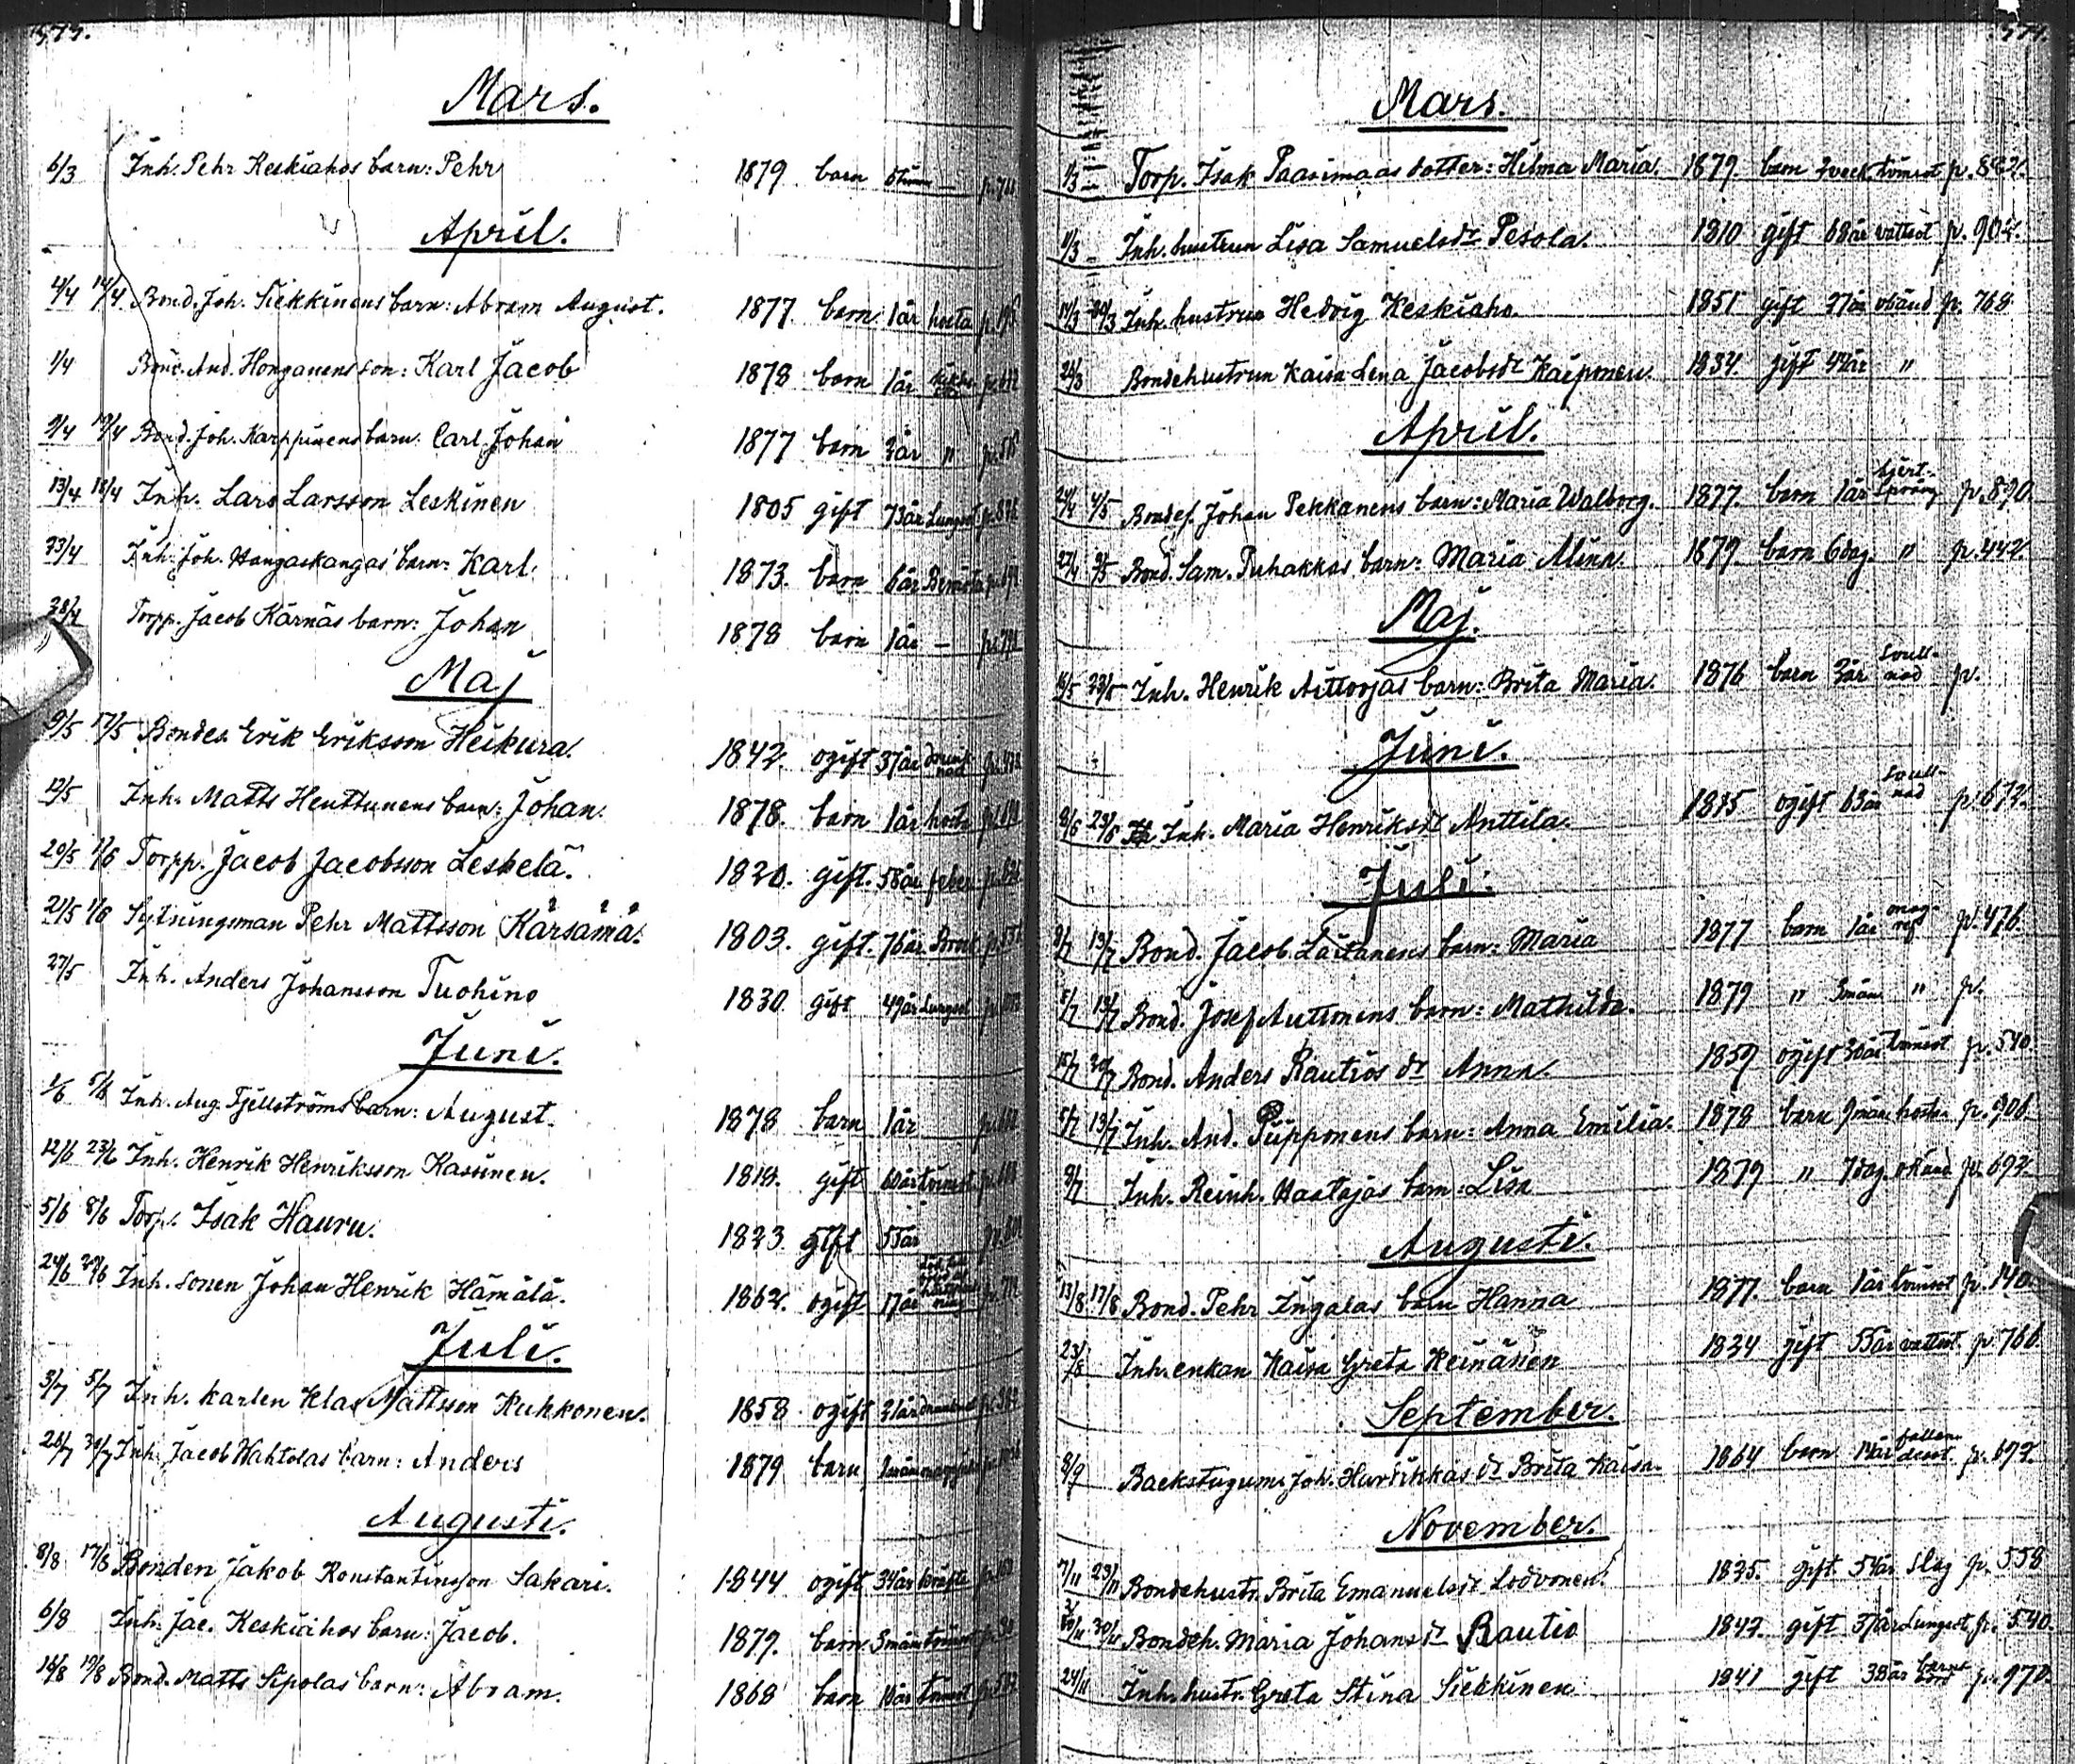 Mars.
6/3 Inh. Pehr Keskiahos barn: Pehr 1879 barn
April.
4/4 14/4 Bond. Joh. Siekkinens barn: Abram August. 1877 barn 1 år hosta
1/4 Bond. And. Honganens son: Karl Jacob 1878 barn 1 år
9/4 Bond. Joh. Karppinens barn: Carl Johan 1877 barn 2 år "
13/4 18/4 Inh. Lars Larsson Leskinen 1805 gift 73 år Lungsot
23/4 Inh. Joh. Hangaskangas barn: Karl. 1873. barn 6 år
28/4 Torpp. Jacob Kärnäs barn: Johan 1878 barn 1 år —
Maj
9/5 17/5 Bondes. Erik Eriksson Heikura. 1842. ogift 37 år drunknad
12/5 Inh. Matts Heuttunens barn: Johan. 1878. barn 1 år hosta
20/5 1/6 Torpp. Jacob Jacobsson Leskelä. 1820. gift. 58 år feber
21/5 1/6 Sytningsman Pehr Mattsson Kärsämä. 1803. gift. 76 år
27/5 Inh. Anders Johansson Tuohino 1830 gift 49 år Lungsot
Juni.
5/6 Inh. Aug. Fjellströms barn: August. 1878 barn 1 år
12/6 23/6 Inh. Henrik Henriksson Kassinen. 1818. gift 60 år tvinsot
5/6 8/6 Torp. Isak Hauru. 1823 gift 55 år
24/6 29/6 Inh. sonen Johan Henrik Hämälä. 1862. ogift 17 år
Juli.
3/7 5/7 Inh. karlen Klas Mattsson Kuhkonen. 1858 ogift 21 år drunknad
26/7 Inh. Jacob Wahtolas barn: Anders 1879 barn
Augusti.
8/8 17/8 Bonden Jakob Konstantinsson Sakari. 1844 ogift 34 år kräfta
6/8 Inh. Jac. Keskiahos barn: Jacob. 1879. barn 3 mån tvinsot
16/8 19/8 Bond. Matts Sipolas barn: Abram. 1868 barn 10 år tvinsot
Mars.
1/3 Torp. Isak Paasimaas dotter: Hilma Maria. 1879. barn 2 veck. tvinsot p. 882.
11/3 Inh. hustrun Lisa Samuelsdr Pesola. 1810 gift 68 år vattsot p. 904.
30/3 Inh. hustrun Hedvig Keskiaho. 1851 gift 27 år okänd p. 768
26/3 Bondehustrun Kaisa Lena Jacobsdr Kaiponen. 1834. gift 44 år "
April.
24/4 4/5 Bondes. Johan Pekkanens barn: Maria Walborg. 1877. barn 1 år hjert-språng p. 890.
27/4 Bond. Sam. Puhakkas barn: Maria Alina. 1879. barn 6 dag. " p. 442.
Maj.
16/5 23/5 Inh. Henrik Aittoojas barn: Brita Maria. 1876 barn 3 år svullnad p.
Juni.
8/6 29/6 Inh. Maria Henriksdr Anttila. 1815 ogift 63 år svullnad p. 672.
Juli.
9/7 13/7 Bond. Jacob Laitanens barn: Maria 1877 barn 1 år magref p. 476.
5/7 13/7 Bond. Josef Autimens barn: Mathilda. 1879 " 3 mån " p.
15/7 20/7 Bond. Anders Rautios dr Anna. ogift tvinsot p. 540.
5/7 13/7 Inh. And. Piipponens barn: Anna Emilia. 1878 barn 9 mån hosta p. 906.
9/7 Inh. Reinh. Haatajas barn: Lisa 1879 " 7 dag. okänd p. 692.
Augusti.
13/8 17/8 Bond. Pehr Ingalas barn Hanna 1877. barn 1 år tvinsot p. 140.
23/8 Inh. enkan Kaisa Greta Keinänen 1824 gift 55 år vattsot. p. 766.
September.
8/9 Backstugum. Joh. Hurskikkas dr Brita Kaisa. 1864 barn 14 år fallandesot. p. 692.
November.
7/11 23/11 Bondehustr. Brita Emanuelsdr Lodvonen. 1825. gift 54 år slag p. 558
30/11 Bondeh. Maria Johansdr Rautio 1842. gift 37 år Lungsot p. 540.
24/11 Inh. hustr. Greta Stina Siekkinen 1841 gift 38 år barnsbörd p. 970.